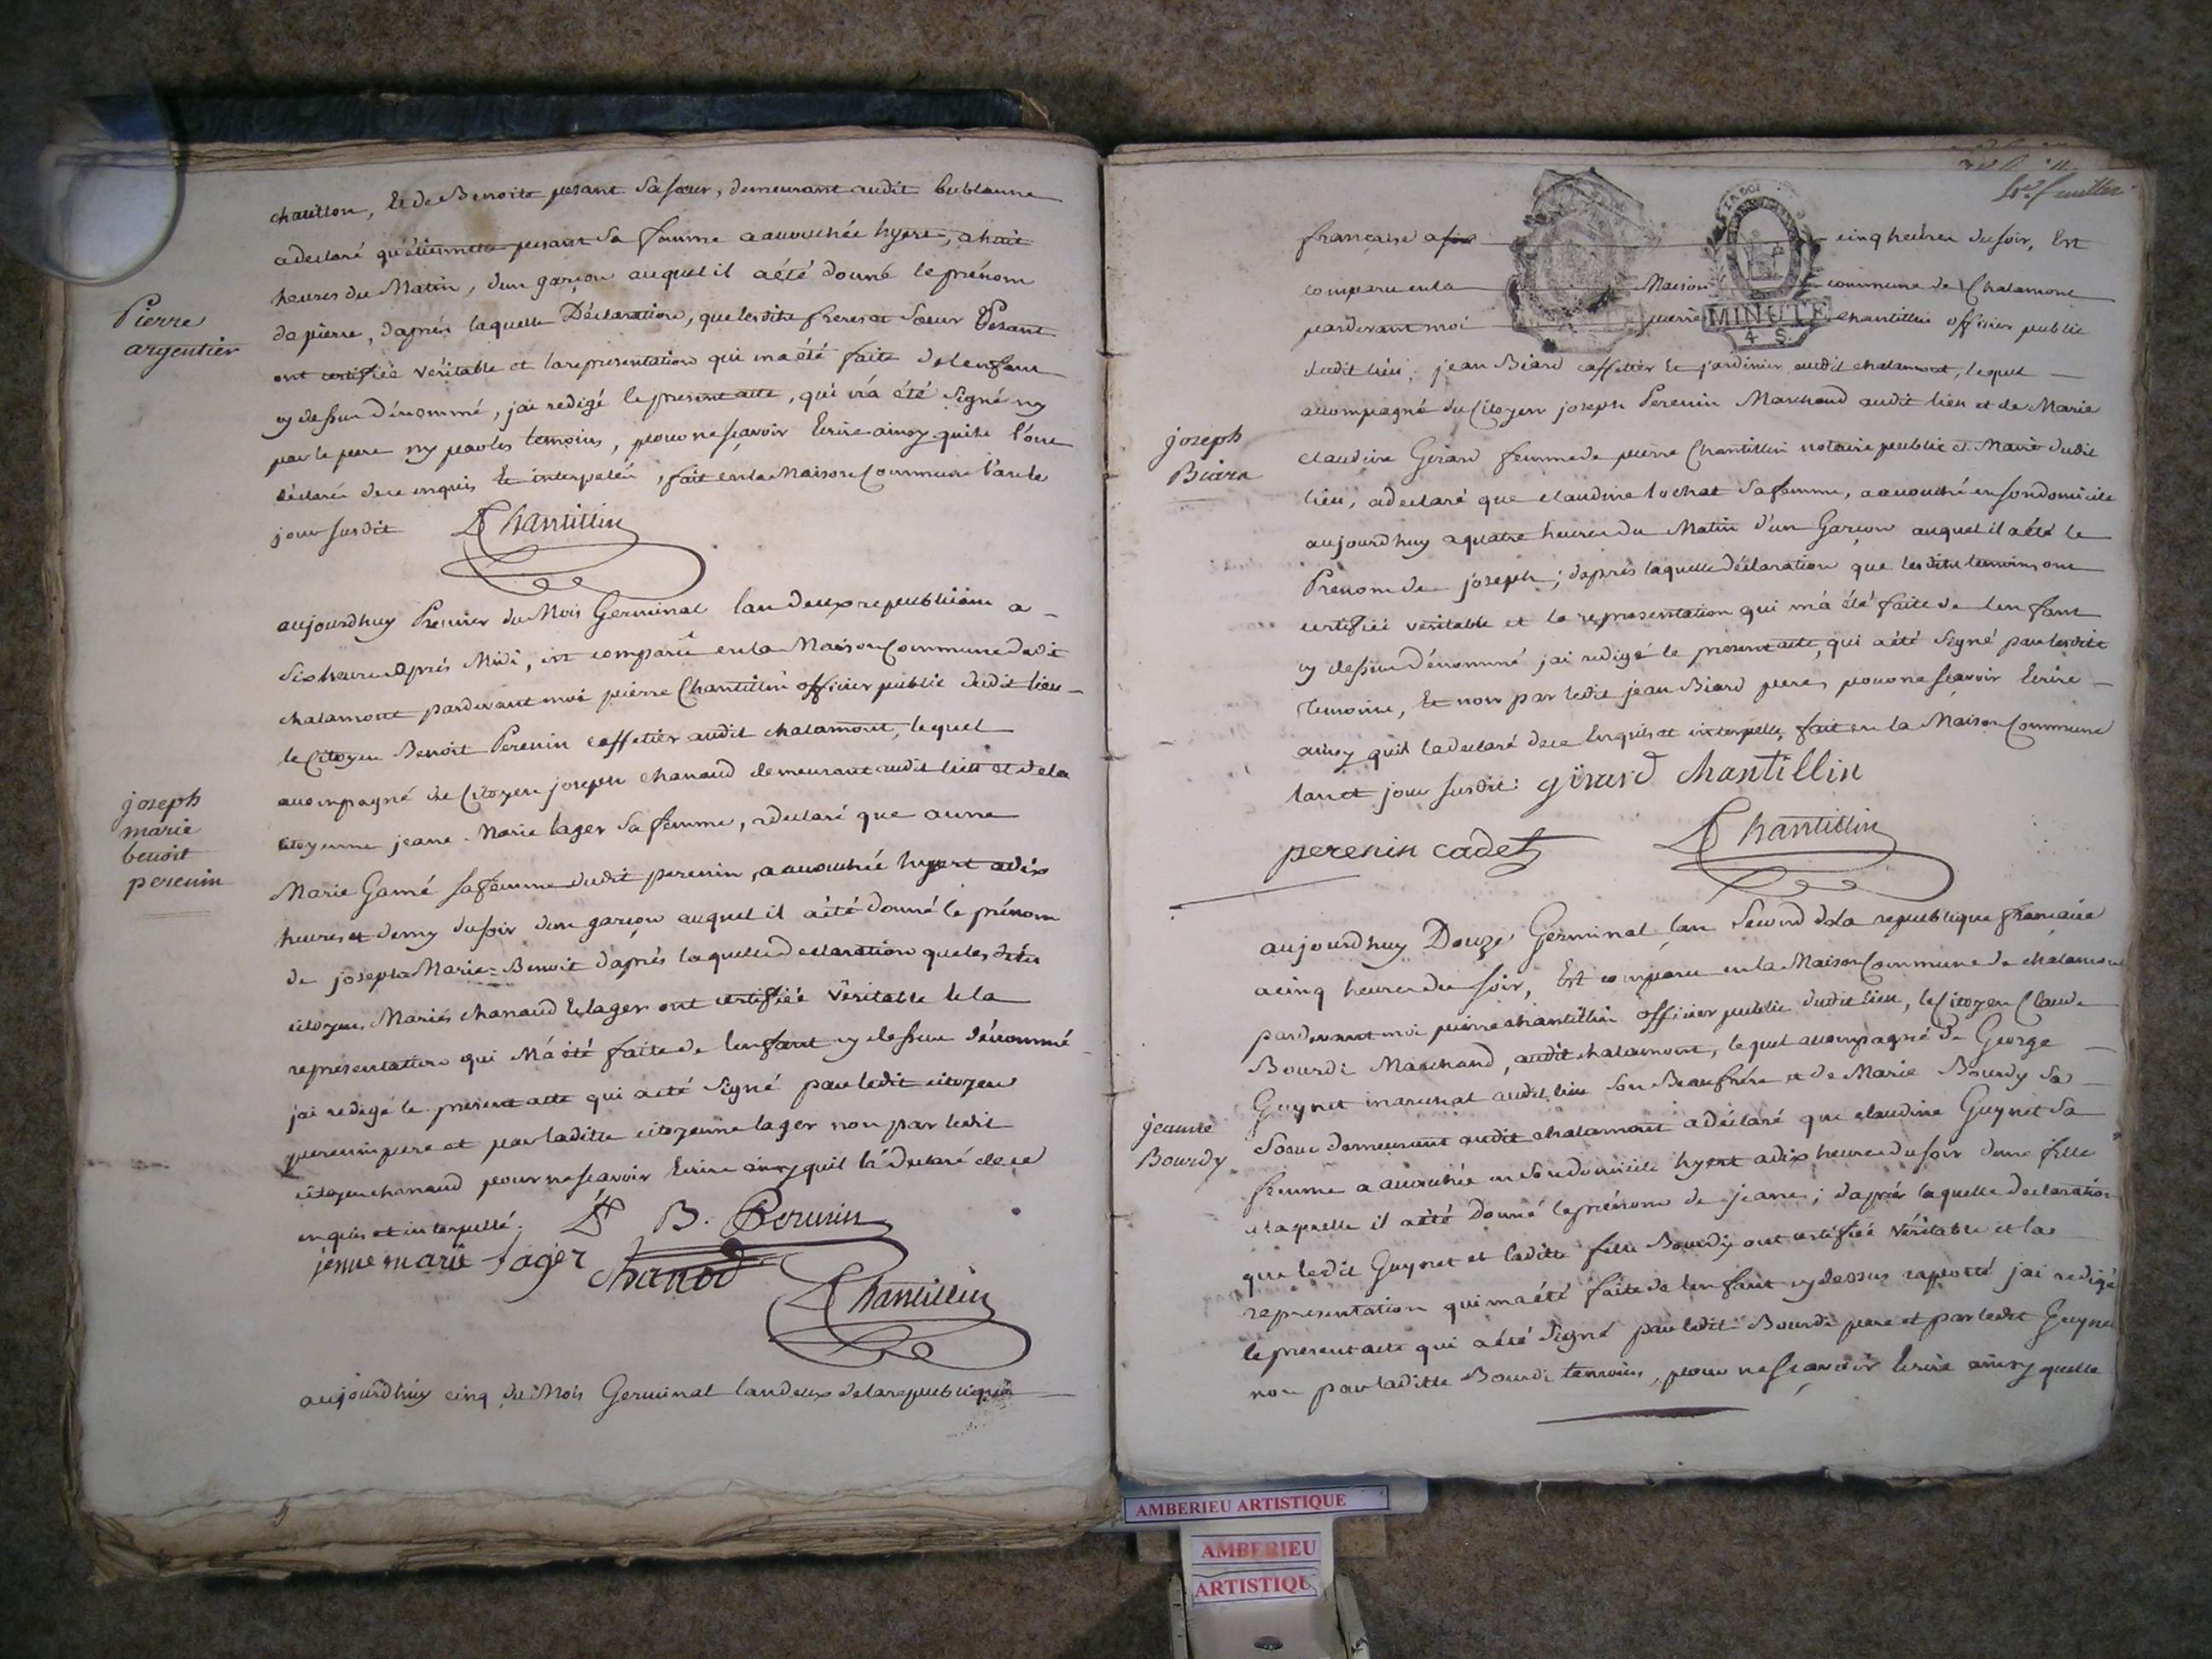 chatillon, et de Benoite pesant sa soeur, demeurant audit
a declaré qu'étiennette pesant sa femme a accouchée hyert, a huit
heures du Matin, dun garçon auquel il a été donné le prénom
de pierre, daprés laquelle Déclaration, que lesdits freres et soeur Pesant
ont certifiée véritable et la representation qui ma été faite de lenfant
cy dessus dénommé, jai redigé le present acte, qui n'a été signé ny
par le pere ny par les temoins, pour ne sçavoir Ecrire ainsy quils l'ont
déclaré de ce enquis et interpelés, fait en la Maison Commune l'an et le
jour susdit Chantillin
Pierre
argentier
aujourdhuy Premier du Mois Germinal lan deux republicain a
six heures après Midi, est comparû en la Maison Commune dudit
chalamont pardevant moi pierre Chantillin officier public dudit lieu
le Citoyen Benoit Perenin caffetier audit chalamont, lequel
accompagné du Citoyen joseph chanaud demeurant audit lieu et de la
citoyenne jeanne Marie lager sa femme, a declaré que anne
Marie Gamé sa femme dudit perenin, a accouchée hyert a dix
heures et demy du soir dun garçon auquel il a été donné le prénom
de joseph Marie = Benoit daprés laquelle declaration que lesdits
citoyens Mariés chanaud et lager ont certifiée véritable et la
representation qui M'a été faite de lenfant cy dessus dénommé
jai redigé le present acte qui a été signé par ledit citoyen
perenin pere et par laditte citoyenne lager non par ledit
citoyen chanaud pour ne sçavoir Ecrire ainsy quil l'a declaré de ce
enquis et interpellé.
B. Perenin
jenne marie lager chanod
Chantillin
joseph
marie
benoit
perenin
aujourdhuy cinq du Mois Germinal lan deux de la republique
feuillet
française a cinq heures du soir, Est
comparu en la Maison commune de Chalamont
pardevant moi pierre chantillin officier public
MINUTE
4 S.
dudit lieu, jean Biard caffetier et jardinier audit chalamont, lequel
accompagné du Citoyen joseph Perenin Marchand audit lieu et de Marie
claudine Girard femme de pierre Chantillin notaire public et Maire dudit
lieu, a declaré que claudine lochat sa femme, a accouché en son domicile
aujourdhuy a quatre heures du Matin d'un Garçon auquel il a été le
Prenom de joseph; daprés laquelle déclaration que lesdits temoins ont
certifiée véritable et la representation qui m'a été faite de lenfant
cy dessus dénommé jai redigé le present acte, qui a été signé par lesdits
temoins, Et non par ledit jean Biard pere, pour ne sçavoir Ecrire
ainsy quil la declaré de ce Enquis et interpellé, fait en la Maison Commune
lan et jour susdit: girard chantillin
perenin cadet Chantillin
joseph
Biara
aujourdhuy Douze Germinal lan second de la republique française
a cinq heures du soir, Est comparu en la Maison Commune de chalamont
pardevant moi pierre chantillin officier public dudit lieu, le Citoyen Claude
Bourdi Marchand, audit chalamont, lequel accompagné de George
Guynet marechal audit lieu son Beaufrére et de Marie Bourdy sa
soeur demeurant audit chalamont a déclaré que claudine Guynet sa
femme a accouchée en son domicile hyert a dix heures du soir dune fille
a laquelle il a été Donné le prénom de jeanne; daprés laquelle declaration
que ledit Guynet et laditte fille Bourdy ont certifiée véritable et la
representation qui ma été faite de lenfant cy dessus raporté jai redigé
le present acte qui a été signé par ledit Bourdi pere et par ledit Guynet
non par laditte Bourdi temoins, pour ne sçavoir Ecrire ainsy quelle
jeanne
Bourdy
AMBERIEU ARTISTIQUE
AMBERIEU
ARTISTIQU